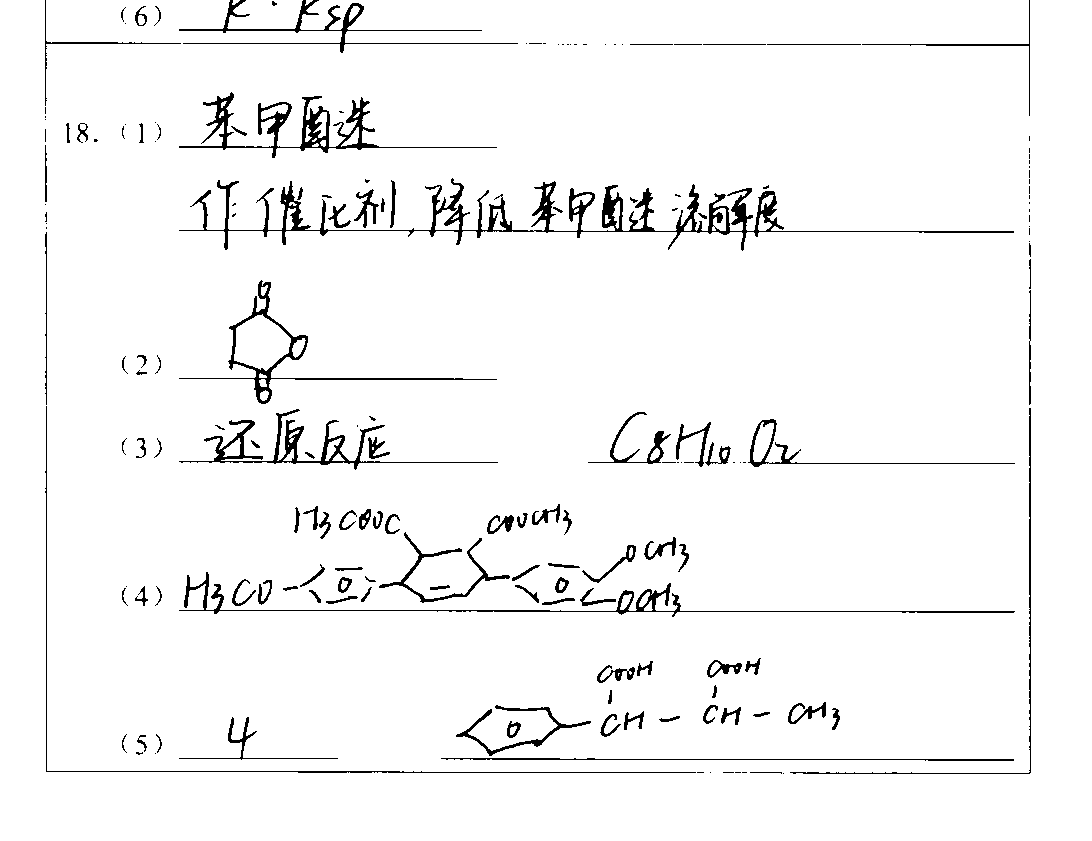 (6) K·Ksp
18. (1) 苯甲酸
作催化剂,降低苯甲酸溶解度
O
O
(2) O
(3) 还原反应 C8H10O2
H3COOC COOCH3
OCH3
(4) H3CO OCH3
COOH COOH
CH - CH - CH3
(5) 4